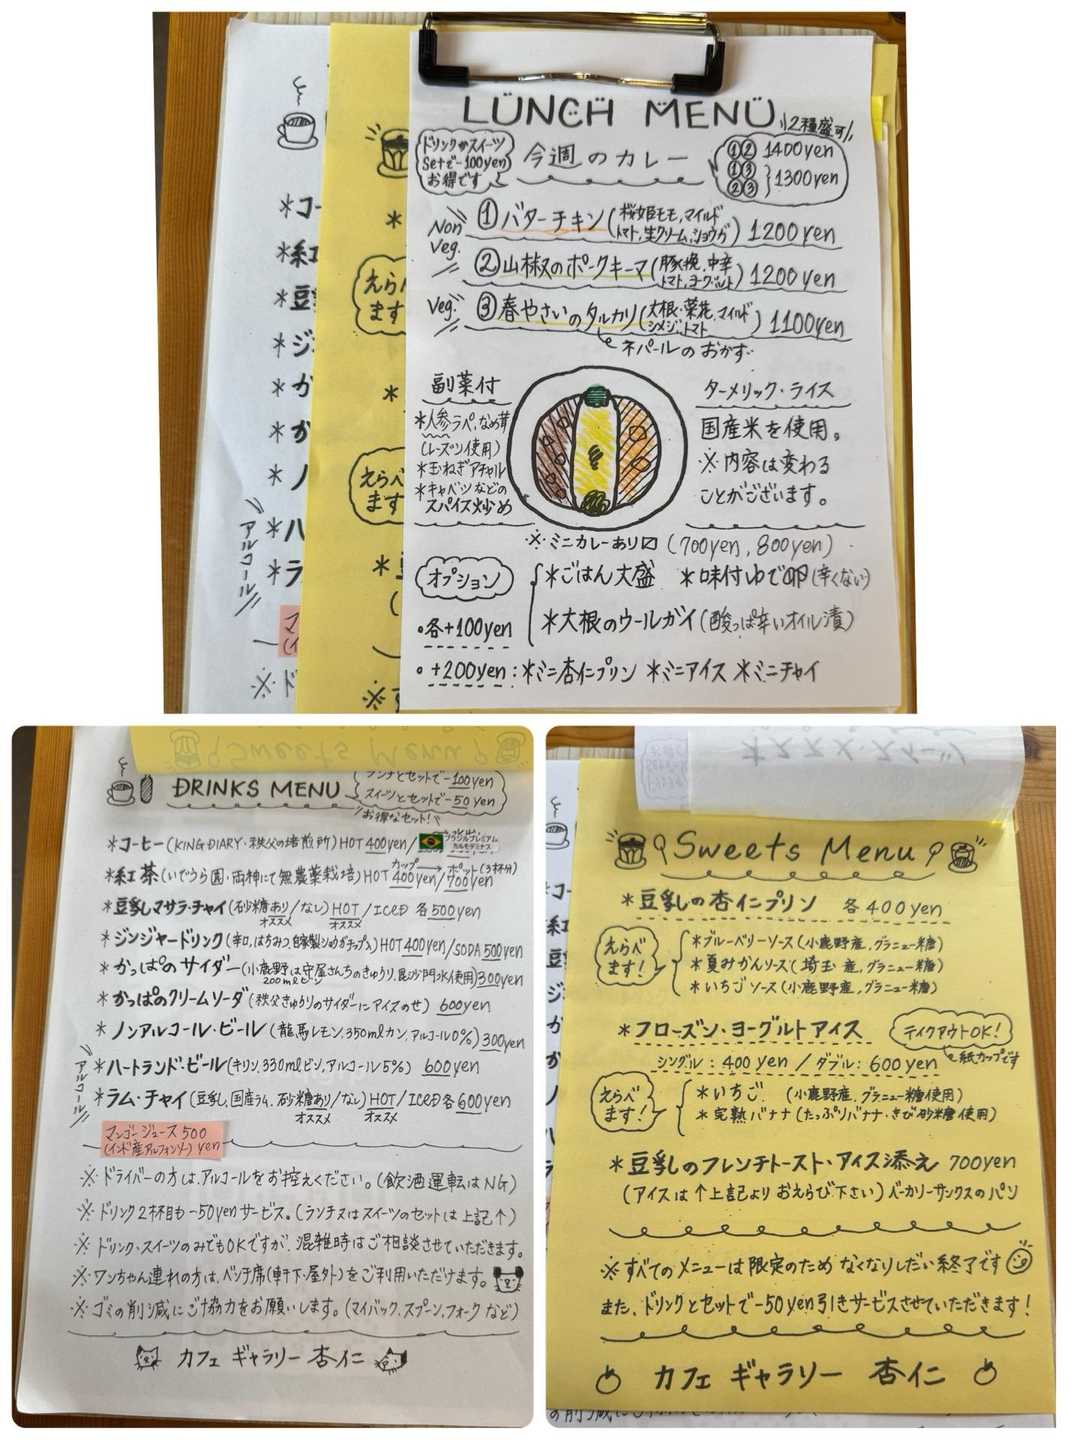 LUNCH MENU
2種盛可
ドリンクかスイーツ
Setで-100yen
お得です
今週のカレー
①② 1400yen
①③
②③ } 1300yen
Non Veg.
①バターチキン(桜姫モモ,マイルド トマト,生クリーム,ショウガ) 1200yen
②山椒のポークキーマ(豚挽,中辛 トマト,ヨーグルト) 1200yen
Veg.
③春やさいのタルカリ(大根・菜花,マイルド シメジ,トマト) 1100yen
ネパールのおかず
副菜付
*人参ラペ,なめ茸
(レーズン使用)
*玉ねぎアチャル
*キャベツなどの
スパイス炒め
ターメリック・ライス
国産米を使用。
※内容は変わる
ことがございます。
※ミニカレーあり〼 (700yen, 800yen)
オプション
・各+100yen
*ごはん大盛 *味付ゆで卵(辛くない)
*大根のウールガイ(酸っぱ辛いオイル漬)
・+200yen:*ミニ杏仁プリン *ミニアイス *ミニチャイ
えらべ
ます!
えらべ
ます!
アルコール
DRINKS MENU
ランチとセットで-100yen
スイーツとセットで-50yen
お得なセット!
*コーヒー(KING DIARY・秩父の焙煎所) HOT 400yen/ ブラジルプレミアム
カップ ポット(3杯分)
*紅茶(いでうら園・両神にて無農薬栽培) HOT 400yen/700yen
*豆乳マサラ・チャイ(砂糖あり/なし) HOT/ICED 各500yen
オススメ オススメ
*ジンジャードリンク(辛口,はちみつ,自家製ショウガチップス) HOT 400yen/SODA 500yen
*かっぱのサイダー(小鹿野は守屋さんちのきゅうり,毘沙門水使用)300yen
200mlビン
*かっぱのクリームソーダ(秩父きゅうりのサイダーにアイスのせ) 600yen
*ノンアルコール・ビール(龍馬レモン,350mlカン,アルコール0%) 300yen
アルコール
*ハートランド・ビール(キリン,330mlビン,アルコール5%) 600yen
*ラム・チャイ(豆乳,国産ラム,砂糖あり/なし) HOT/ICED各600yen
オススメ オススメ
マンゴージュース 500
(インド産アルフォンソー) yen
※ドライバーの方は,アルコールをお控えください。(飲酒運転はNG)
※ドリンク2杯目も-50yenサービス。(ランチ又はスイーツのセットは上記↑)
※ドリンク・スイーツのみでもOKですが,混雑時はご相談させていただきます。
※ワンちゃん連れの方は,ベンチ席(軒下・屋外)をご利用いただけます。
※ゴミの削減にご協力をお願いします。(マイバック,スプーン,フォークなど)
カフェ ギャラリー 杏仁
Sweets Menu
*豆乳の杏仁プリン 各400yen
えらべ
ます!
*ブルーベリーソース(小鹿野産,グラニュー糖)
*夏みかんソース(埼玉産,グラニュー糖)
*いちごソース(小鹿野産,グラニュー糖)
*フローズン・ヨーグルトアイス
テイクアウトOK!
紙カップです
シングル:400yen/ダブル:600yen
えらべ
ます!
*いちご (小鹿野産,グラニュー糖使用)
*完熟バナナ(たっぷりバナナ・きび砂糖使用)
*豆乳のフレンチトースト・アイス添え 700yen
(アイスは↑上記よりおえらび下さい) ベーカリーサンクスのパン
※すべてのメニューは限定のためなくなりしだい終了です
また,ドリンクとセットで-50yen引きサービスさせていただきます!
カフェ ギャラリー 杏仁